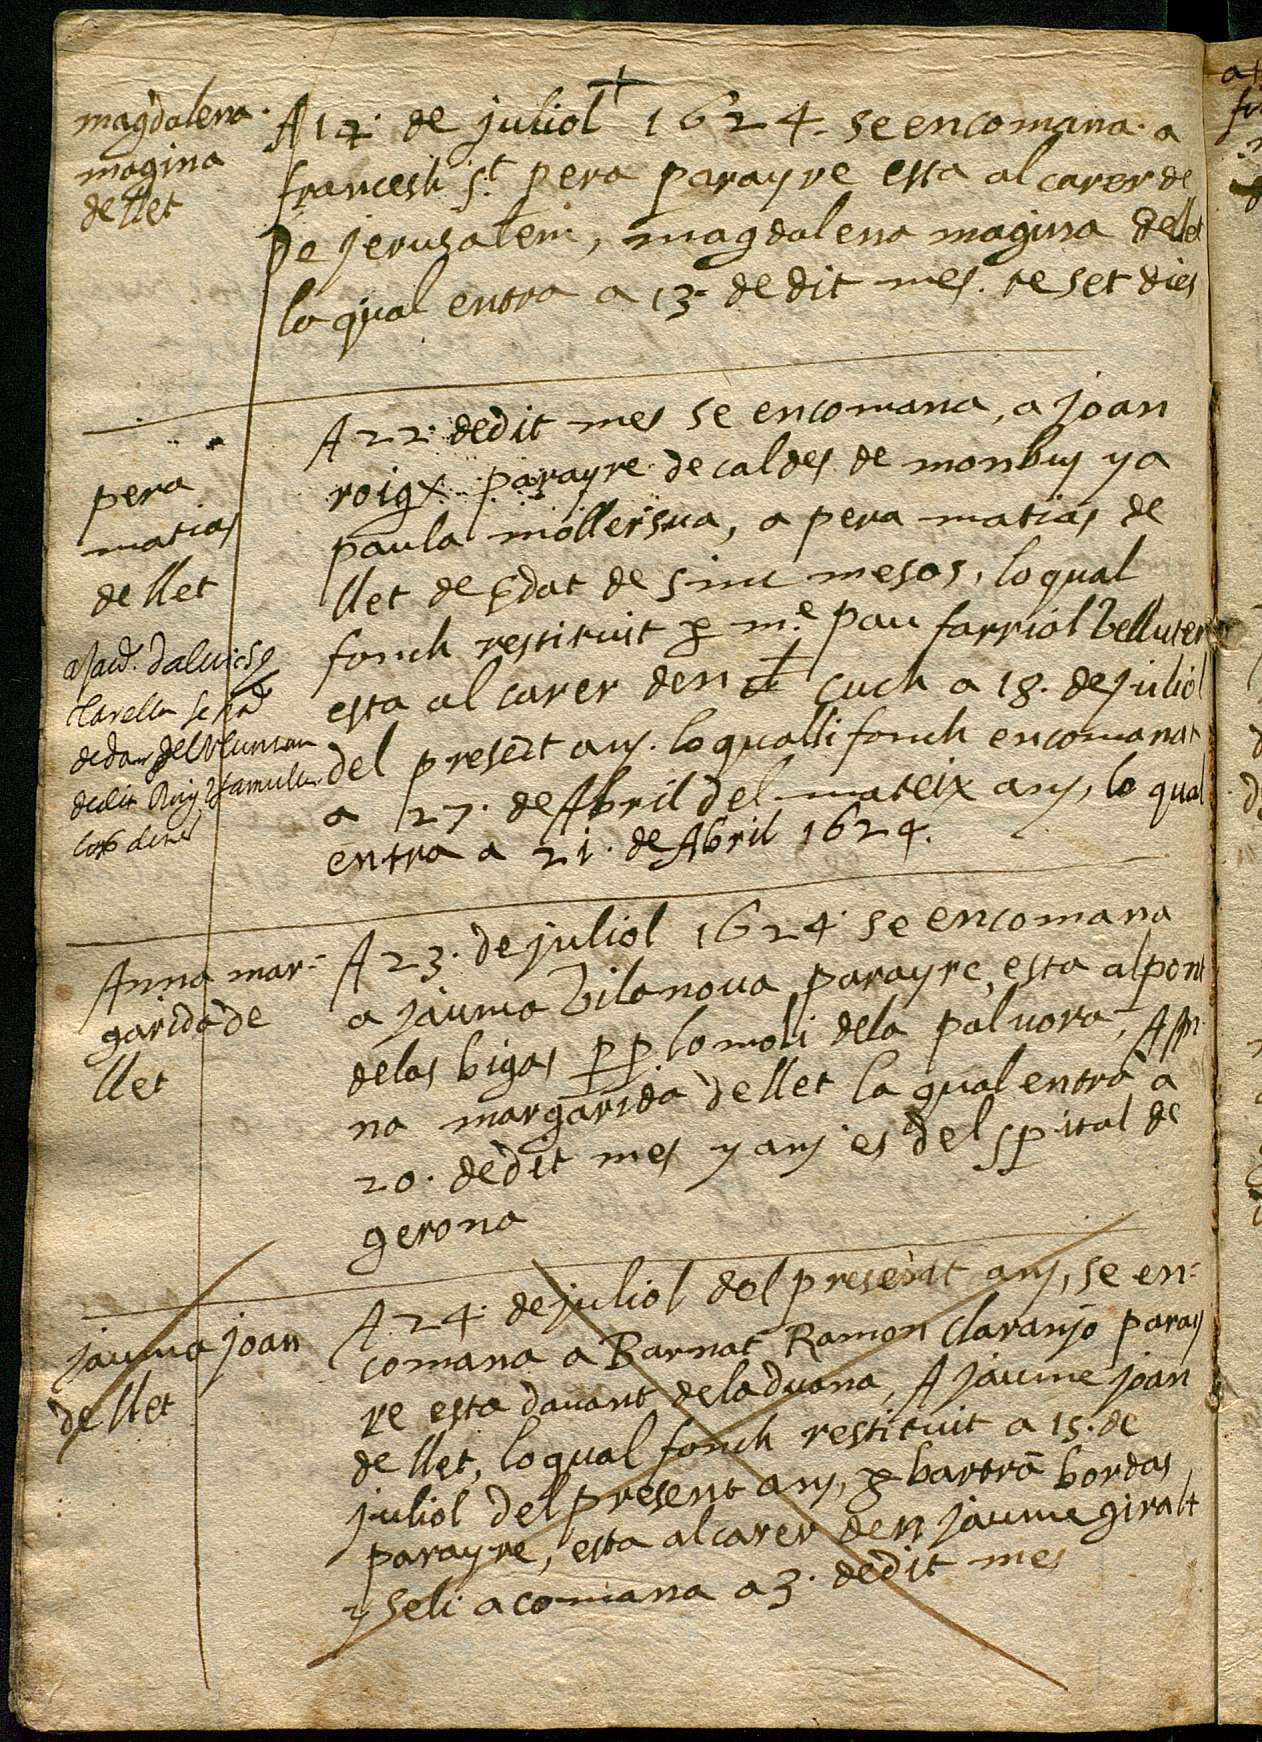 magdalena
magina
de llet
A 17 de juliol 1624 se encomana a
francesh St pera parayre esta al carer de
De jerusalem, magdalena magina de llet
la qual entra a 13 de dit mes. te set dies
pera
matias
de llet
A 22 de dit mes se encomana, a joan
roigx parayre de caldes de monbuy y a
paula moller sua, a pera matias de
llet de Edat de sinc mesos, lo qual
fonch restituit p m.e pau farriol belluter
esta al carer den cuch a 18. de juliol
del present any. lo qual li fonch encomanat
a 27. de Abril del mateix any, lo qual
entra a 21. de Abril 1624.
Anna mar-
garida de
llet
A 23. de juliol 1624 se encomana
a jauma bilanova parayre, esta al pont
de las bigas pp lo moli de la palvora, An-
na margarida de llet la qual entra a
20. de dit mes y any es del spital de
gerona
jauma joan
de llet
A 24. de juliol del present any, se en-
comana a Barnat Ramon claranjo paray
re esta davant de la duana, A jaume joan
de llet, lo qual fonch restituit a 15. de
juliol del present any, p bartrã bordas
parayre, esta al carer den jaume giralt
y se li acomana a 3. de dit mes